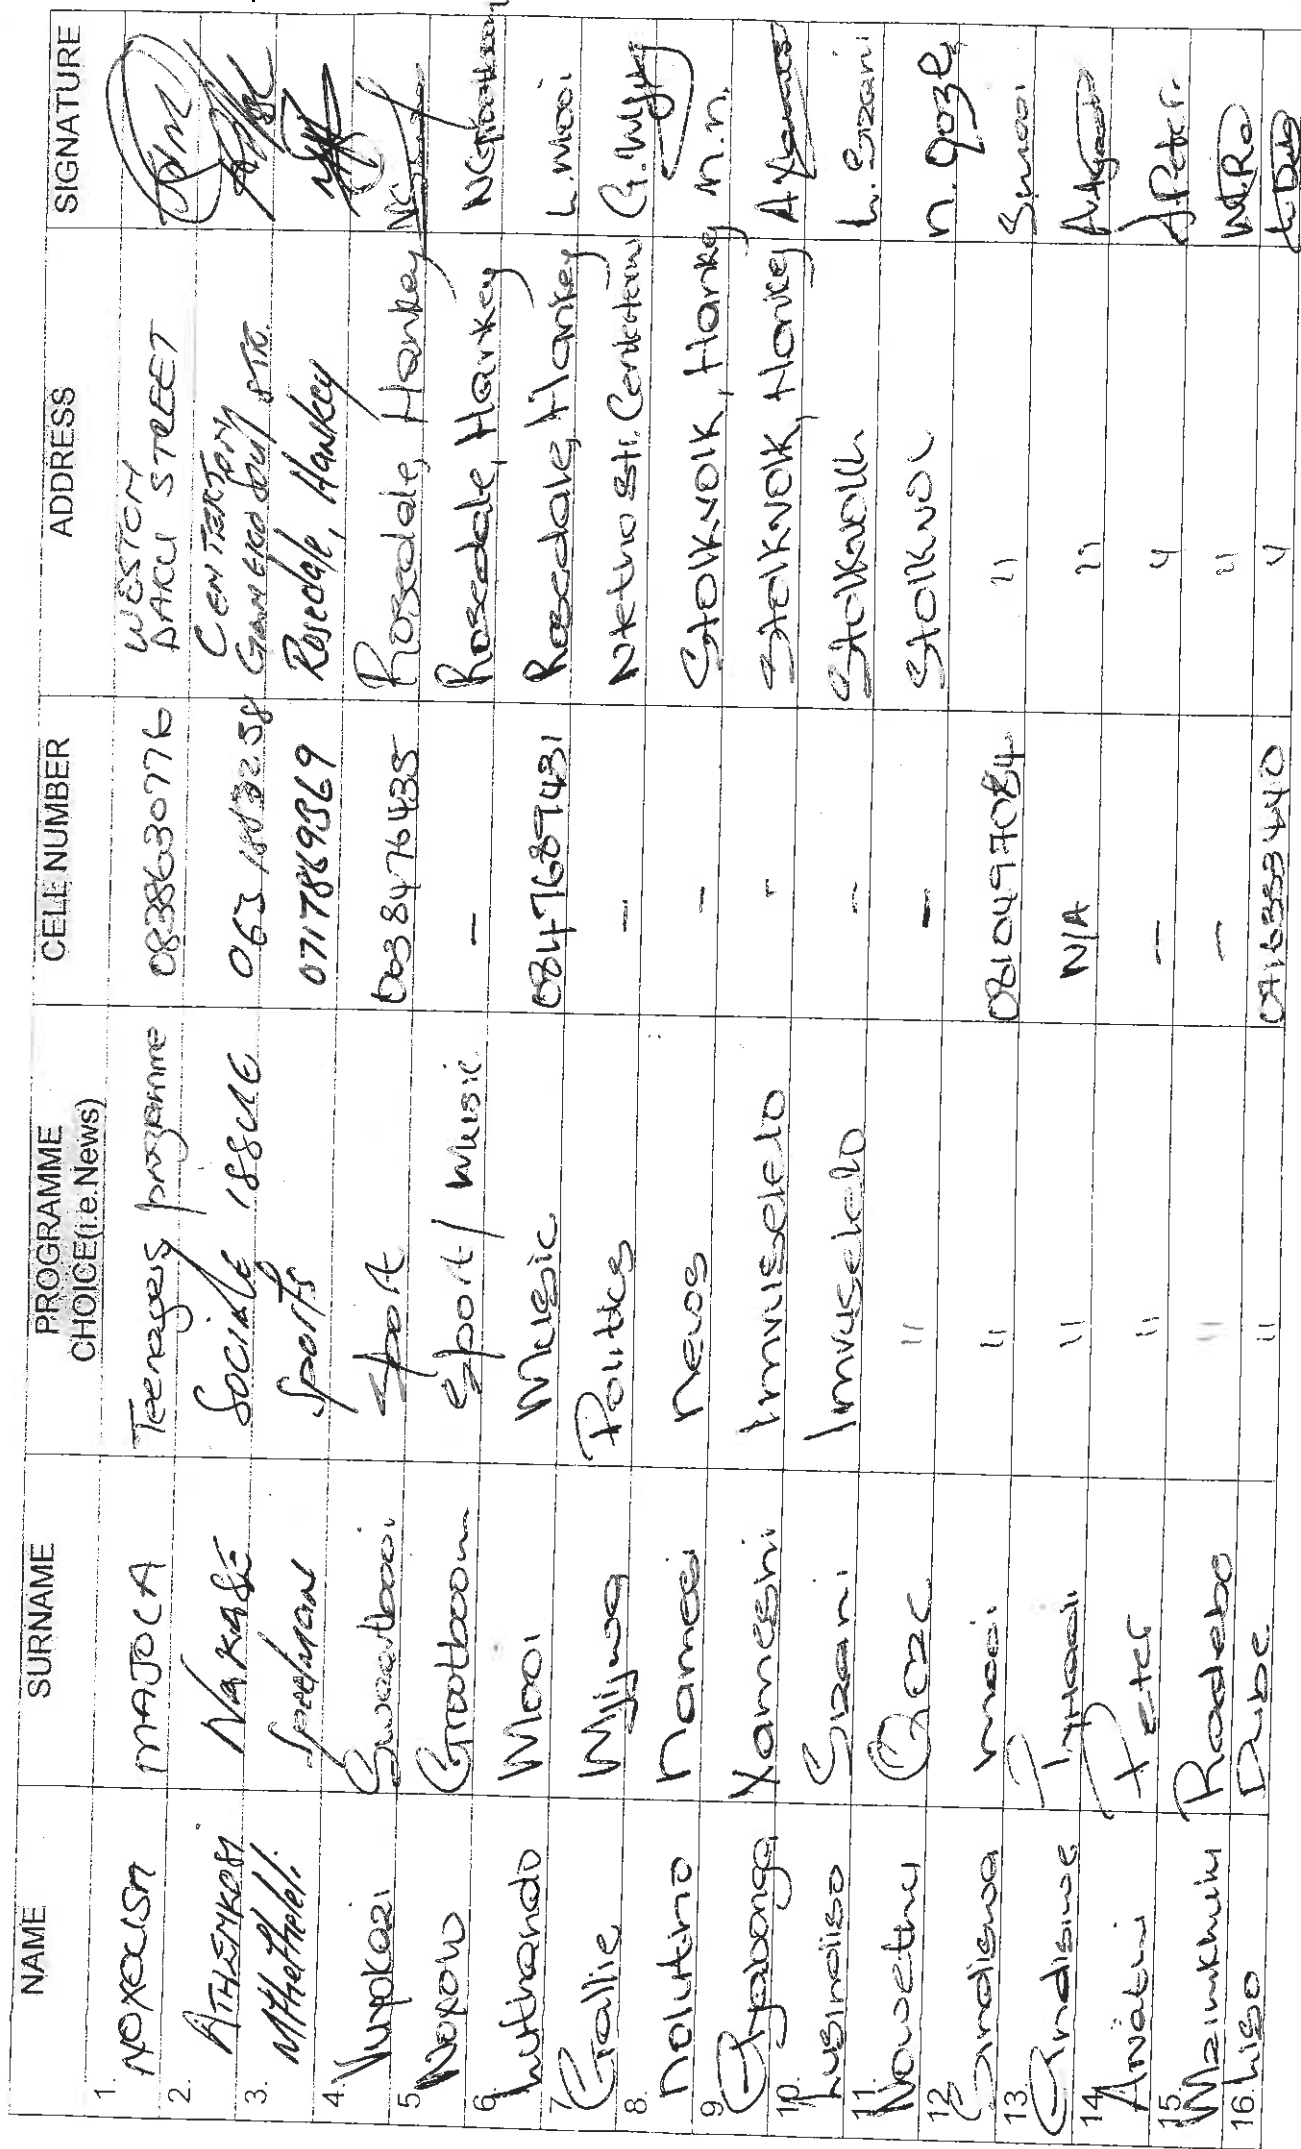 NAME SURNAME PROGRAMME CHOICE(i.e.News) CELL NUMBER ADDRESS SIGNATURE
1. NOXOLISA MAJOLA Teenagers programme 0838630776 WESTON DAKU STREET
2. ATHENKOSI NAKASE SOCIALE ISSUE 063 CENTERTON STR.
3. Mthetheleli Speelman Sports 0717869369 Rosedale, Hankey
4. Vuyokazi Swartbooi Sport 0638476435 Rosedale, Hankey
5. Noxolo Grootboom Sport / Music – Rosedale, Hankey
6. Luthando Mooi Music 0847689431 Rosedale, Hankey L. Mooi
7. Gallie Mjijwa Politics – Centerton
8. Nolutino Namesi News – Stolknolk, Hankey n.n.
9. Xamesini Imvuselelo - Stolknolk, Hankey
10. Lusindiso Sizani Imvuselelo – Stolknolk L. Sizani
11. Nowethu Qoze " – Stolknol n. qoze
12. Sindiswa Mooi " 0810497084 " S.mooi
13. " N/A "
14. Anathi Peter " – " A Peter.
15. " – "
16. Liso Dube " 0716353440 " L. Dube